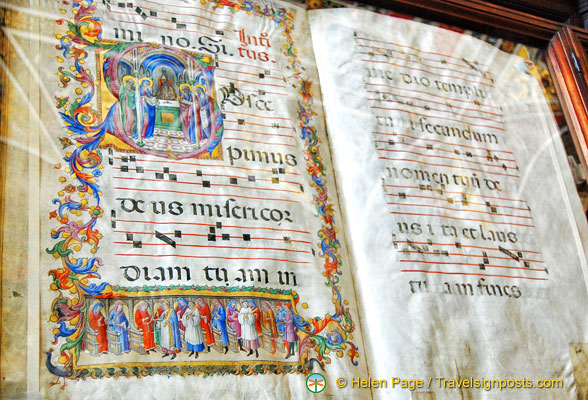 mi no. Si
tus.
pimus
de us misericor
diam tu am in
me dio templi
tu i secundum
nomen tuū de
us i ta et laus
tu a in fines
© Helen Page / Travelsignposts.com